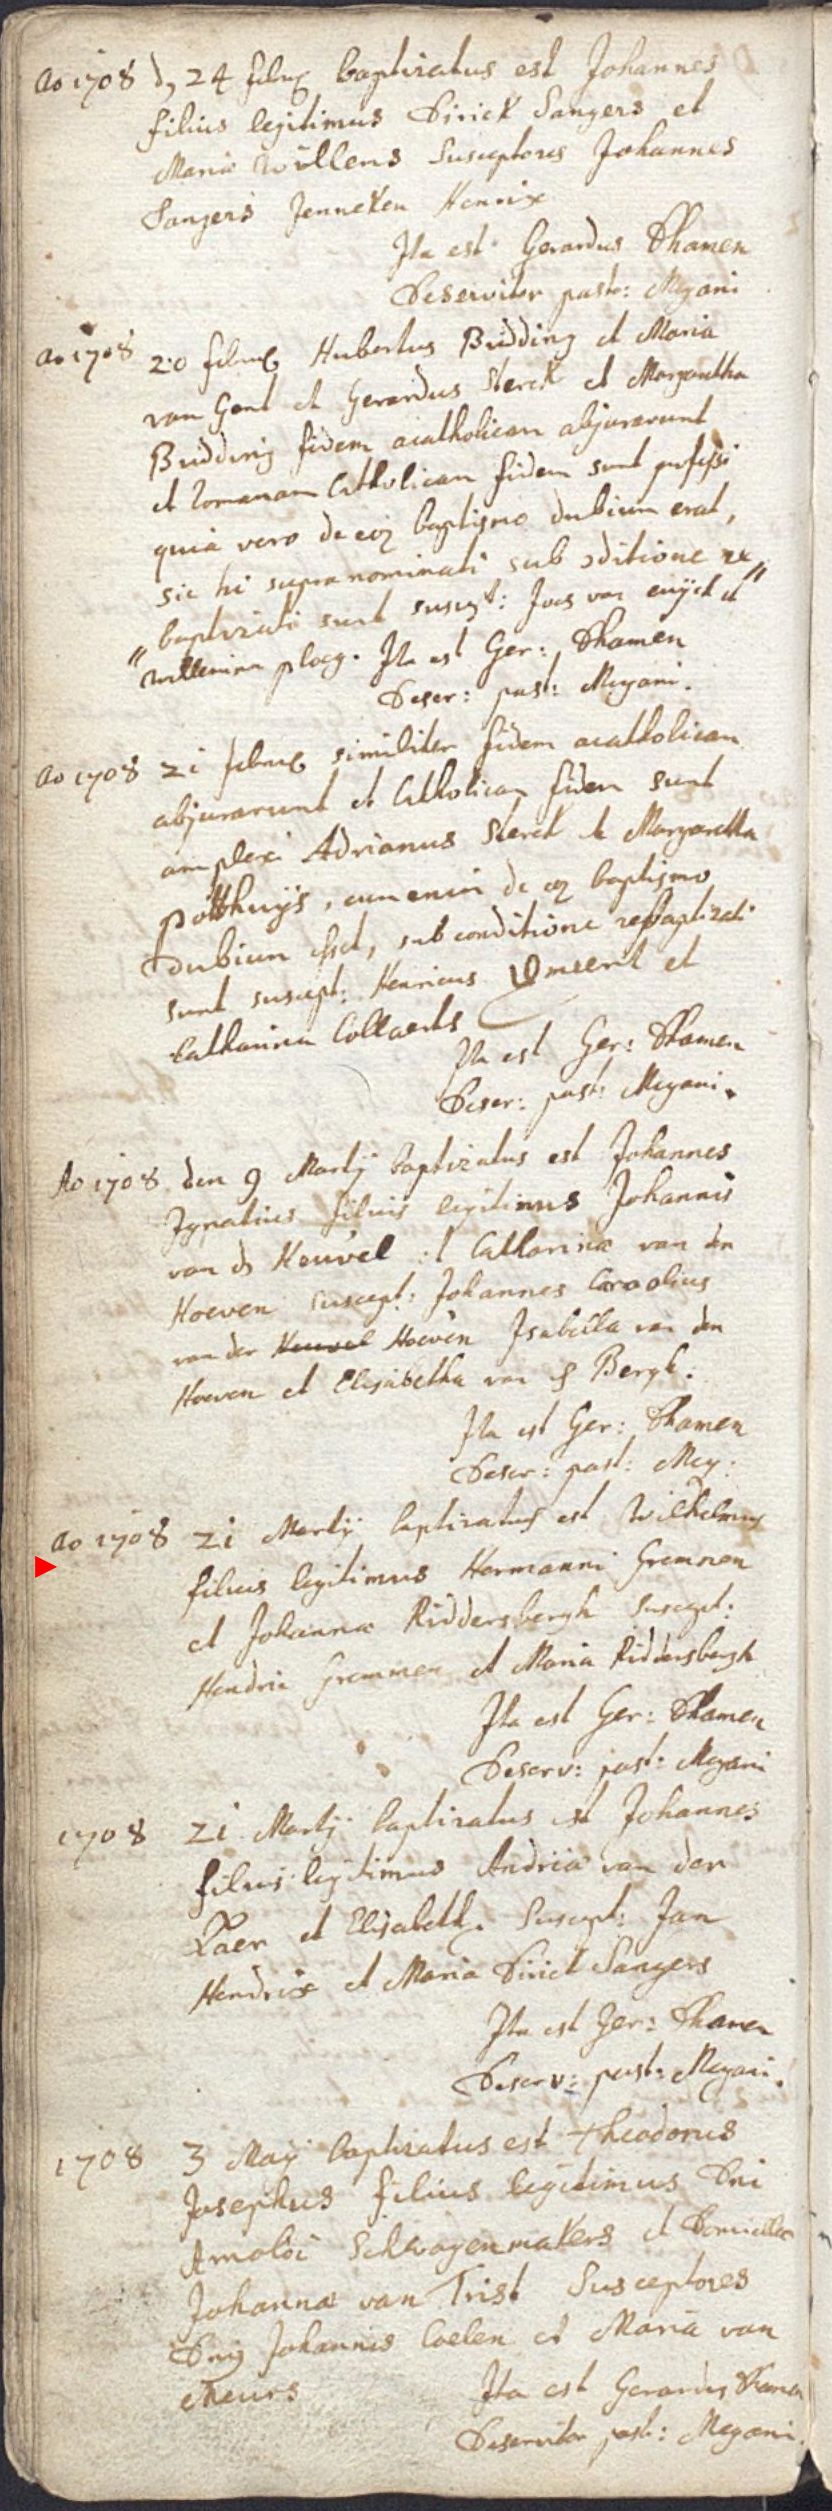 Ao 1708 d, 24 febr baptizatus est Johannes
filius legitimus Dirick Sangers et
Maria Willens Susceptores Johannes
Sangers Jenneken Henrix
Ita est Gerardus Thamen
Deservitor past: Megani
ao 1708 20 febr Hubertus Budding et Maria
van Gent et Gerardus Sterck et Margaretha
Budding fidem acatholicam abjurarunt
et romanam Catholicam fidem sunt professi
quia vero de eor baptismo dubium erat,
sic hi supranominati sub conditione re„
„baptizati sunt suscept: Joes van et
Willemina ploeg. Ita est Ger: Thamen
Deser: past: Megani.
ao 1708 21 febr similiter fidem acatholicam
abjurarunt et Catholicam fidem sunt
amplexi Adrianus Sterck et Margaretha
potthuijs, cum enim de eor baptismo
dubium esset, sub conditione rebaptizati
sunt suscept: Henricus et
Catharina Collaerts
Ita est Ger: Thamen
Deser: past: Megani.
Ao 1708 den 9 Martij baptizatus est Johannes
Ignatius filius legitimus Johannis
van d Heuvel et Catharina van den
Hoeven suscept: Johannes Carolus
van der Heuvel Hoeven Isabella van den
Hoeven et Elisabetha van Bergh.
Ita est Ger: Thamen
Deser: past: Meg:
ao 1708 21 Martij baptizatus est Wilhelmus
filius legitimus Hermanni Gremmen
et Johanna Riddersbergh suscept:
Hendrin Gremmen et Maria Riddersbergh
Ita est Ger: Thamen
Deserv: past: Megani
1708 21 Martij baptizatus est Johannes
filius legitimus Andriæ van der
Laer et Elisabeth. Suscept: Jan
Hendrix et Maria Dirick Sangers
Ita est Ger: Thamen
Deserv: past: Megani.
1708 3 Maij baptizatus est Theodorus
Josephus filius legitimus Dni
Arnoldi Schwagenmakers et Domicellæ
Johannæ van Trist Susceptores
Dnus Johannis Coelen et Maria van
Meurs Ita est Gerardus Thamen
Deservitor past: Megani.